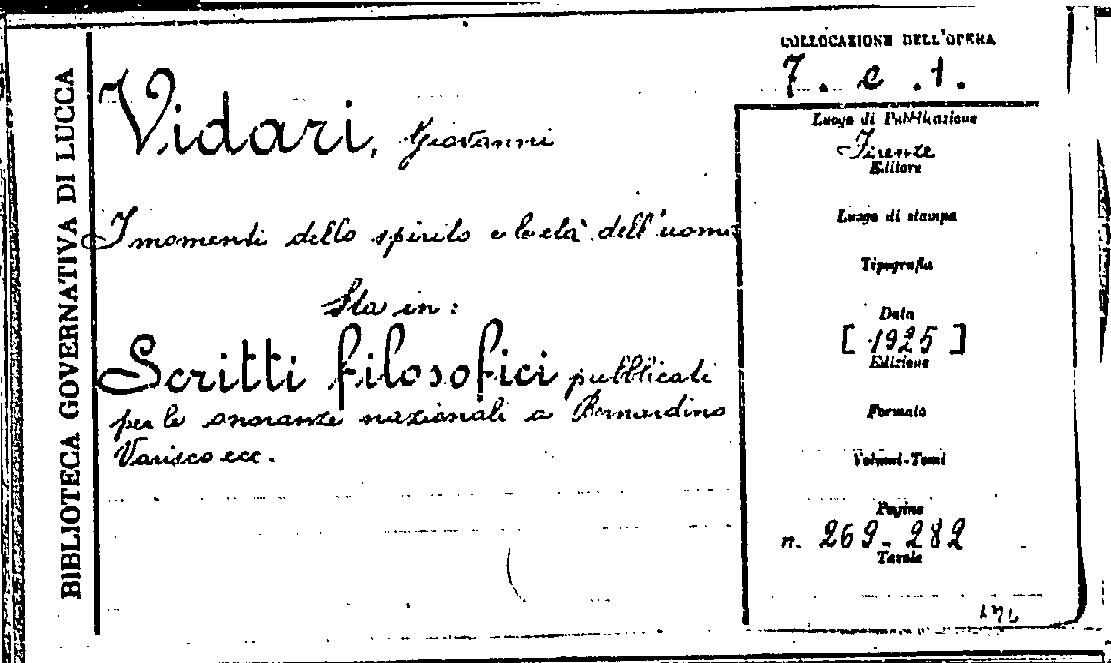 BIBLIOTECA GOVERNATIVA DI LUCCA
COLLOCAZIONE DELL'OPERA
7. c. 1.
Vidari, Giovanni
I momenti dello spirito e le età dell'uomo
Sta in:
Scritti filosofici pubblicati
per le onoranze nazionali a Bernardino
Varisco ecc.
Luogo di Pubblicazione
Firenze
Editore
Luogo di stampa
Tipografia
Data
[1925]
Edizione
Formato
Volumi-Tomi
Pagine
n. 269-282
Tavole